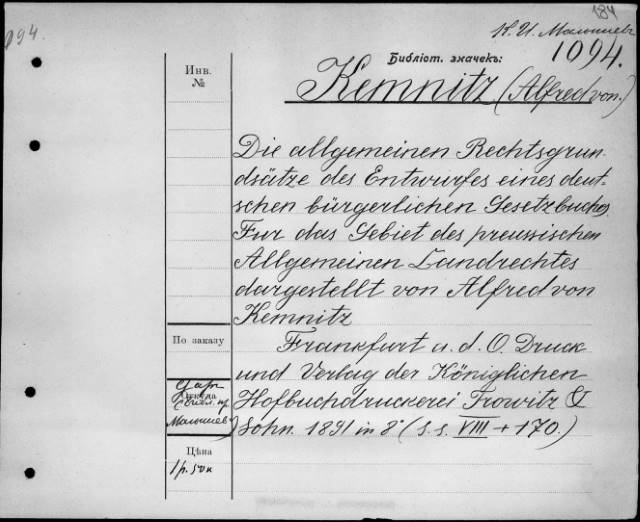 184
К. И. Малышев
1094.
Бібліот. значекъ:
Kemnitz (Alfred von.)
Инв.
№
Die allgemeinen Rechtsgrun-
dsätze des Entwurfes eines deut-
schen bürgerlichen Gesetzbuches
Fur das Gebiet des preussischen
Allgemeinen Landrechtes
dargestellt von Alfred von
Kemnitz
Frankfurt a. d. O. Druck
und Verlag der Königlichen
Hofbuchdruckerei Trowitz &
Sohn. 1891 in 8° (S. s. VIII + 170.)
По заказу
Даръ
Откуда
Малышев
Цѣна
1 р. 50 к